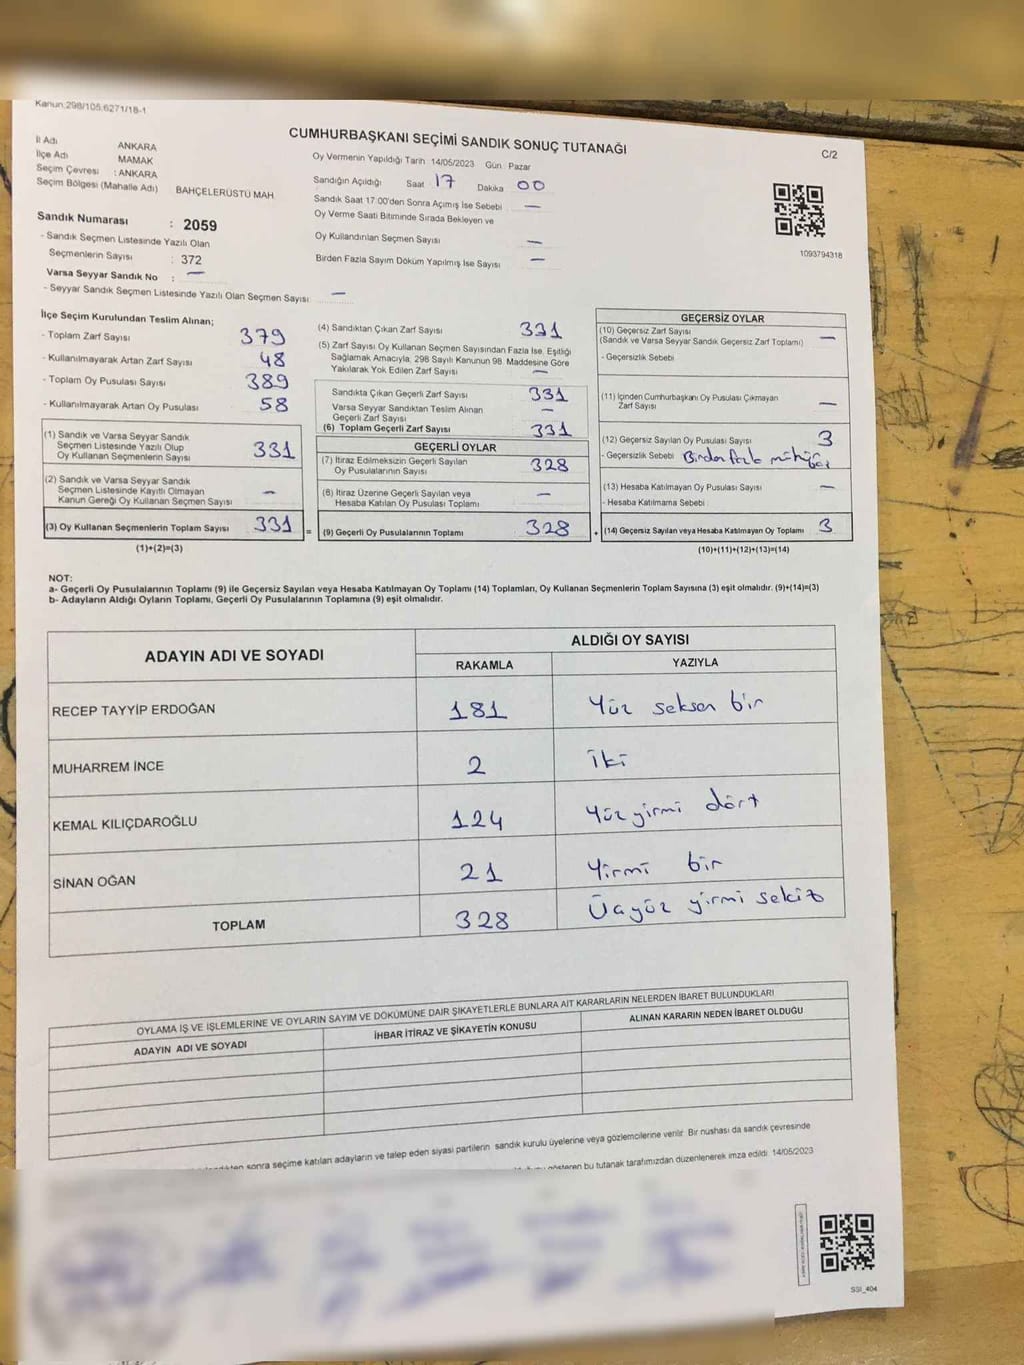 Kanun:298/105,6271/18-1
CUMHURBAŞKANI SEÇİMİ SANDIK SONUÇ TUTANAĞI
C/2
İl Adı ANKARA
İlçe Adı MAMAK
Seçim Çevresi : ANKARA
Seçim Bölgesi (Mahalle Adı) BAHÇELERÜSTÜ MAH.
Oy Vermenin Yapıldığı Tarih 14/05/2023 Gün Pazar
Sandığın Açıldığı Saat 17 Dakika 00
Sandık Saat 17:00'den Sonra Açımış İse Sebebi —
Oy Verme Saati Bitiminde Sırada Bekleyen ve
Oy Kullandırılan Seçmen Sayısı —
Birden Fazla Sayım Döküm Yapılmış İse Sayısı —
1093794318
Sandık Numarası : 2059
- Sandık Seçmen Listesinde Yazılı Olan
Seçmenlerin Sayısı : 372
Varsa Seyyar Sandık No : —
- Seyyar Sandık Seçmen Listesinde Yazılı Olan Seçmen Sayısı —
İlçe Seçim Kurulundan Teslim Alınan;
- Toplam Zarf Sayısı 379
- Kullanılmayarak Artan Zarf Sayısı 48
- Toplam Oy Pusulası Sayısı 389
- Kullanılmayarak Artan Oy Pusulası 58
(1) Sandık ve Varsa Seyyar Sandık
Seçmen Listesinde Yazılı Olup
Oy Kullanan Seçmenlerin Sayısı 331
(2) Sandık ve Varsa Seyyar Sandık
Seçmen Listesinde Kayıtlı Olmayan
Kanun Gereği Oy Kullanan Seçmen Sayısı —
(3) Oy Kullanan Seçmenlerin Toplam Sayısı 331 =
(1)+(2)=(3)
(4) Sandıktan Çıkan Zarf Sayısı 331
(5) Zarf Sayısı Oy Kullanan Seçmen Sayısından Fazla İse, Eşitliği
Sağlamak Amacıyla, 298 Sayılı Kanunun 98. Maddesine Göre
Yakılarak Yok Edilen Zarf Sayısı —
Sandıkta Çıkan Geçerli Zarf Sayısı 331
Varsa Seyyar Sandıktan Teslim Alınan
Geçerli Zarf Sayısı —
(6) Toplam Geçerli Zarf Sayısı 331
GEÇERLİ OYLAR
(7) İtiraz Edilmeksizin Geçerli Sayılan
Oy Pusulalarının Sayısı 328
(8) İtiraz Üzerine Geçerli Sayılan veya
Hesaba Katılan Oy Pusulası Toplamı —
(9) Geçerli Oy Pusulalarının Toplamı 328
GEÇERSİZ OYLAR
(10) Geçersiz Zarf Sayısı
(Sandık ve Varsa Seyyar Sandık Geçersiz Zarf Toplamı) —
- Geçersizlik Sebebi
(11) İçinden Cumhurbaşkanı Oy Pusulası Çıkmayan
Zarf Sayısı —
(12) Geçersiz Sayılan Oy Pusulası Sayısı 3
- Geçersizlik Sebebi Birden fazla
(13) Hesaba Katılmayan Oy Pusulası Sayısı —
- Hesaba Katılmama Sebebi
(14) Geçersiz Sayılan veya Hesaba Katılmayan Oy Toplamı 3
(10)+(11)+(12)+(13)=(14)
NOT:
a- Geçerli Oy Pusulalarının Toplamı (9) ile Geçersiz Sayılan veya Hesaba Katılmayan Oy Toplamı (14) Toplamları, Oy Kullanan Seçmenlerin Toplam Sayısına (3) eşit olmalıdır. (9)+(14)=(3)
b- Adayların Aldığı Oyların Toplamı, Geçerli Oy Pusulalarının Toplamına (9) eşit olmalıdır.
ADAYIN ADI VE SOYADI ALDIĞI OY SAYISI
RAKAMLA YAZIYLA
RECEP TAYYİP ERDOĞAN 181 Yüz seksen bir
MUHARREM İNCE 2 İki
KEMAL KILIÇDAROĞLU 124 Yüz yirmi dört
SİNAN OĞAN 21 Yirmi bir
TOPLAM 328 Üçyüz yirmi sekiz
OYLAMA İŞ VE İŞLEMLERİNE VE OYLARIN SAYIM VE DÖKÜMÜNE DAİR ŞİKAYETLERLE BUNLARA AİT KARARLARIN NELERDEN İBARET BULUNDUKLARI
ADAYIN ADI VE SOYADI İHBAR İTİRAZ VE ŞİKAYETİN KONUSU ALINAN KARARIN NEDEN İBARET OLDUĞU
sonra seçime katılan adayların ve talep eden siyasi partilerin sandık kurulu üyelerine veya gözlemcilerine verilir. Bir nüshası da sandık çevresinde
gösteren bu tutanak tarafımızdan düzenlenerek imza edildi. 14/05/2023
SSI_404